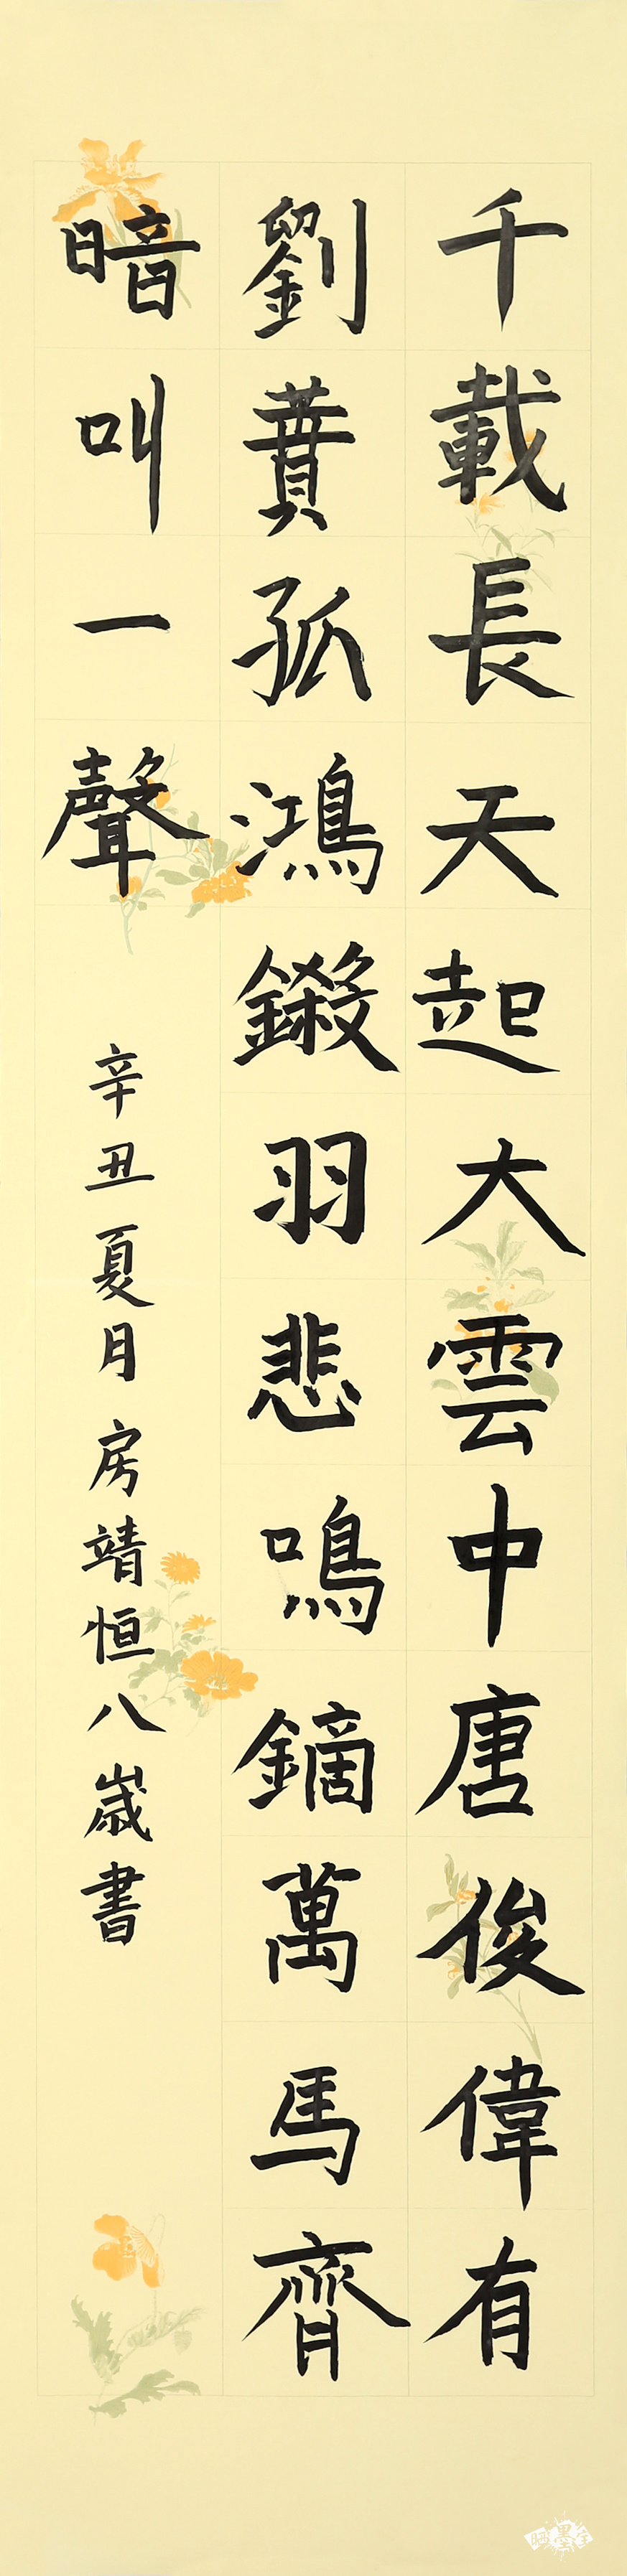 千載長天起大雲中唐俊偉有
劉蕡孤鴻鎩羽悲鳴鏑萬馬齊
暗叫一聲
辛丑夏月房靖恒八歲書
晒墨